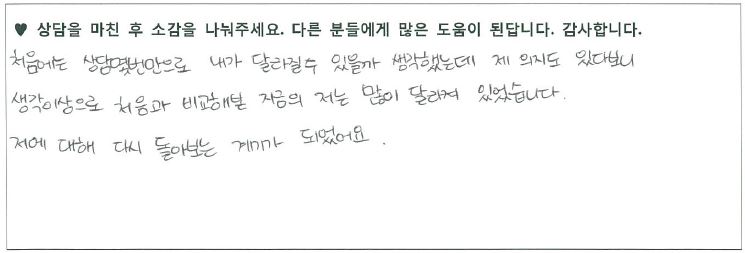 ♥ 상담을 마친 후 소감을 나눠주세요. 다른 분들에게 많은 도움이 된답니다. 감사합니다.
처음에는 상담몇번만으로 내가 달라질수 있을까 생각했는데 제 의지도 있다보니
생각이상으로 처음과 비교해본 지금의 저는 많이 달라져 있었습니다.
저에 대해 다시 돌아보는 계기가 되었어요.